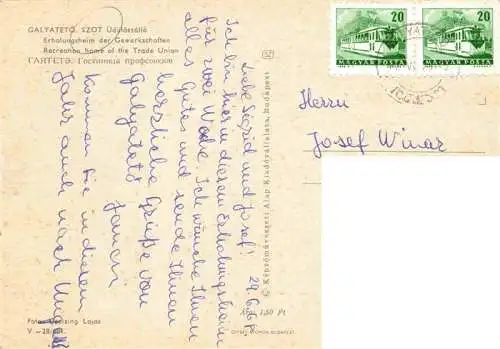 GALYATETŐ. SZOT Üdülőszálló
Erholungsheim der Gewerkschaften
Recreation home of the Trade Union
ГАЛЯТЕТЭ. Гостиница профсоюзов
20
MAGYAR POSTA
20
MAGYAR POSTA
Herrn
Josef
29.6.68.
Liebe und Josef!
Ich bin hier in diesem Erholungsheim
für zwei Woche. Ich wünsche Ihnen
alles Gutes und sende Ihnen
herzliche Grüße von
Galyatető
Jancsi
Kommen Sie in diesem
Jahr auch nach
© Képzőművészeti Alap Kiadóvállalata, Budapest
Ára: 1,20 Ft
Lajos